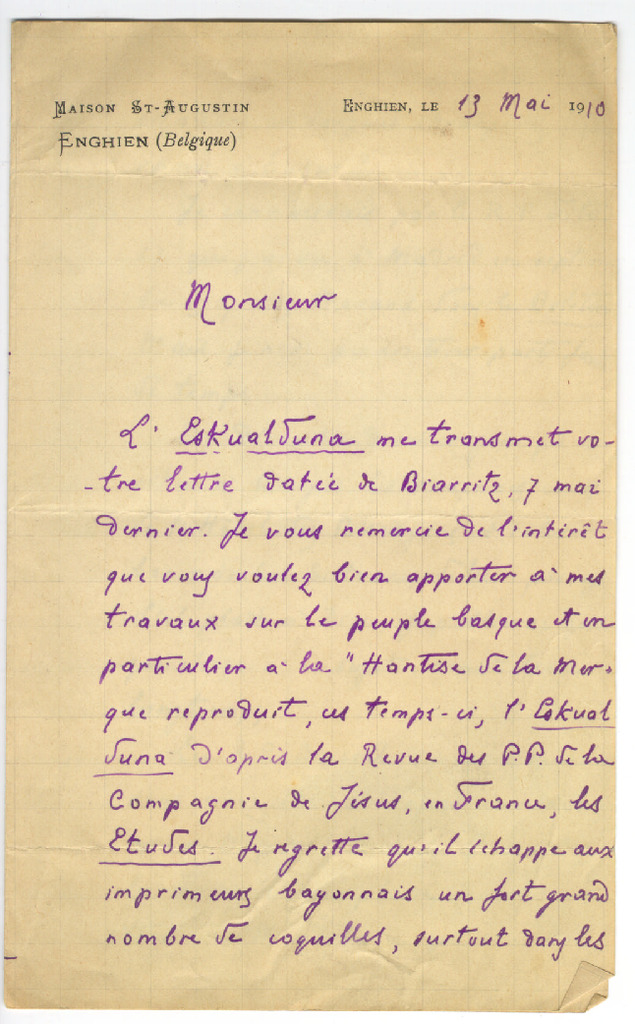 Maison St-Augustin
Enghien, le 13 Mai 1910
Enghien (Belgique)
Monsieur
L' Eskualduna me transmet vo-
-tre lettre datée de Biarritz, 7 mai
dernier. Je vous remercie de l'intérêt
que vous voulez bien apporter à mes
travaux sur le peuple basque et en
particulier à la "Hantise de la Mer"
que reproduit, ces temps-ci, l'Eskual
duna d'après la Revue des P.P. de la
Compagnie de Jésus, en France, les
Etudes. Je regrette qu'il échappe aux
imprimeurs bayonnais un fort grand
nombre de coquilles, surtout dans les